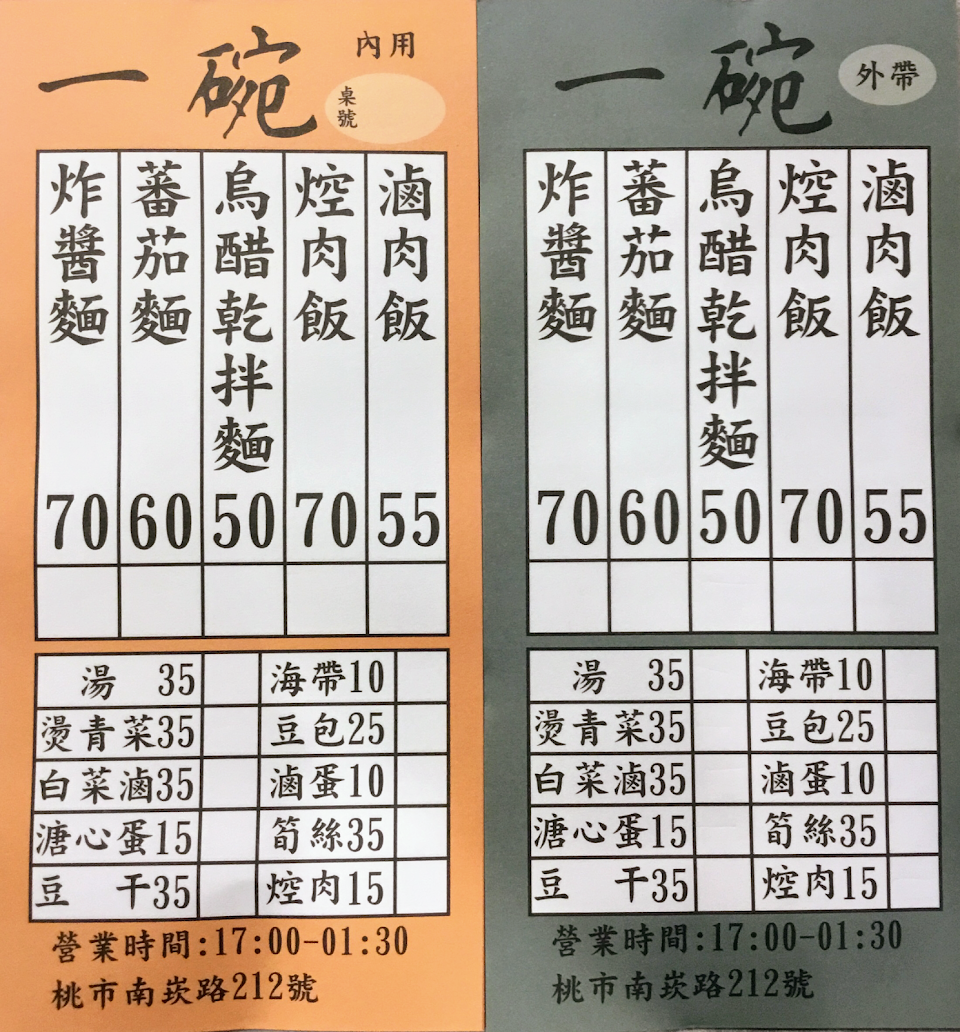 一碗
內用
桌號
滷肉飯 55
焢肉飯 70
烏醋乾拌麵 50
蕃茄麵 60
炸醬麵 70
湯 35
海帶10
燙青菜35
豆包25
白菜滷35
滷蛋10
溏心蛋15
筍絲35
豆干35
焢肉15
營業時間:17:00-01:30
桃市南崁路212號
一碗
外帶
滷肉飯 55
焢肉飯 70
烏醋乾拌麵 50
蕃茄麵 60
炸醬麵 70
湯 35
海帶10
燙青菜35
豆包25
白菜滷35
滷蛋10
溏心蛋15
筍絲35
豆干35
焢肉15
營業時間:17:00-01:30
桃市南崁路212號